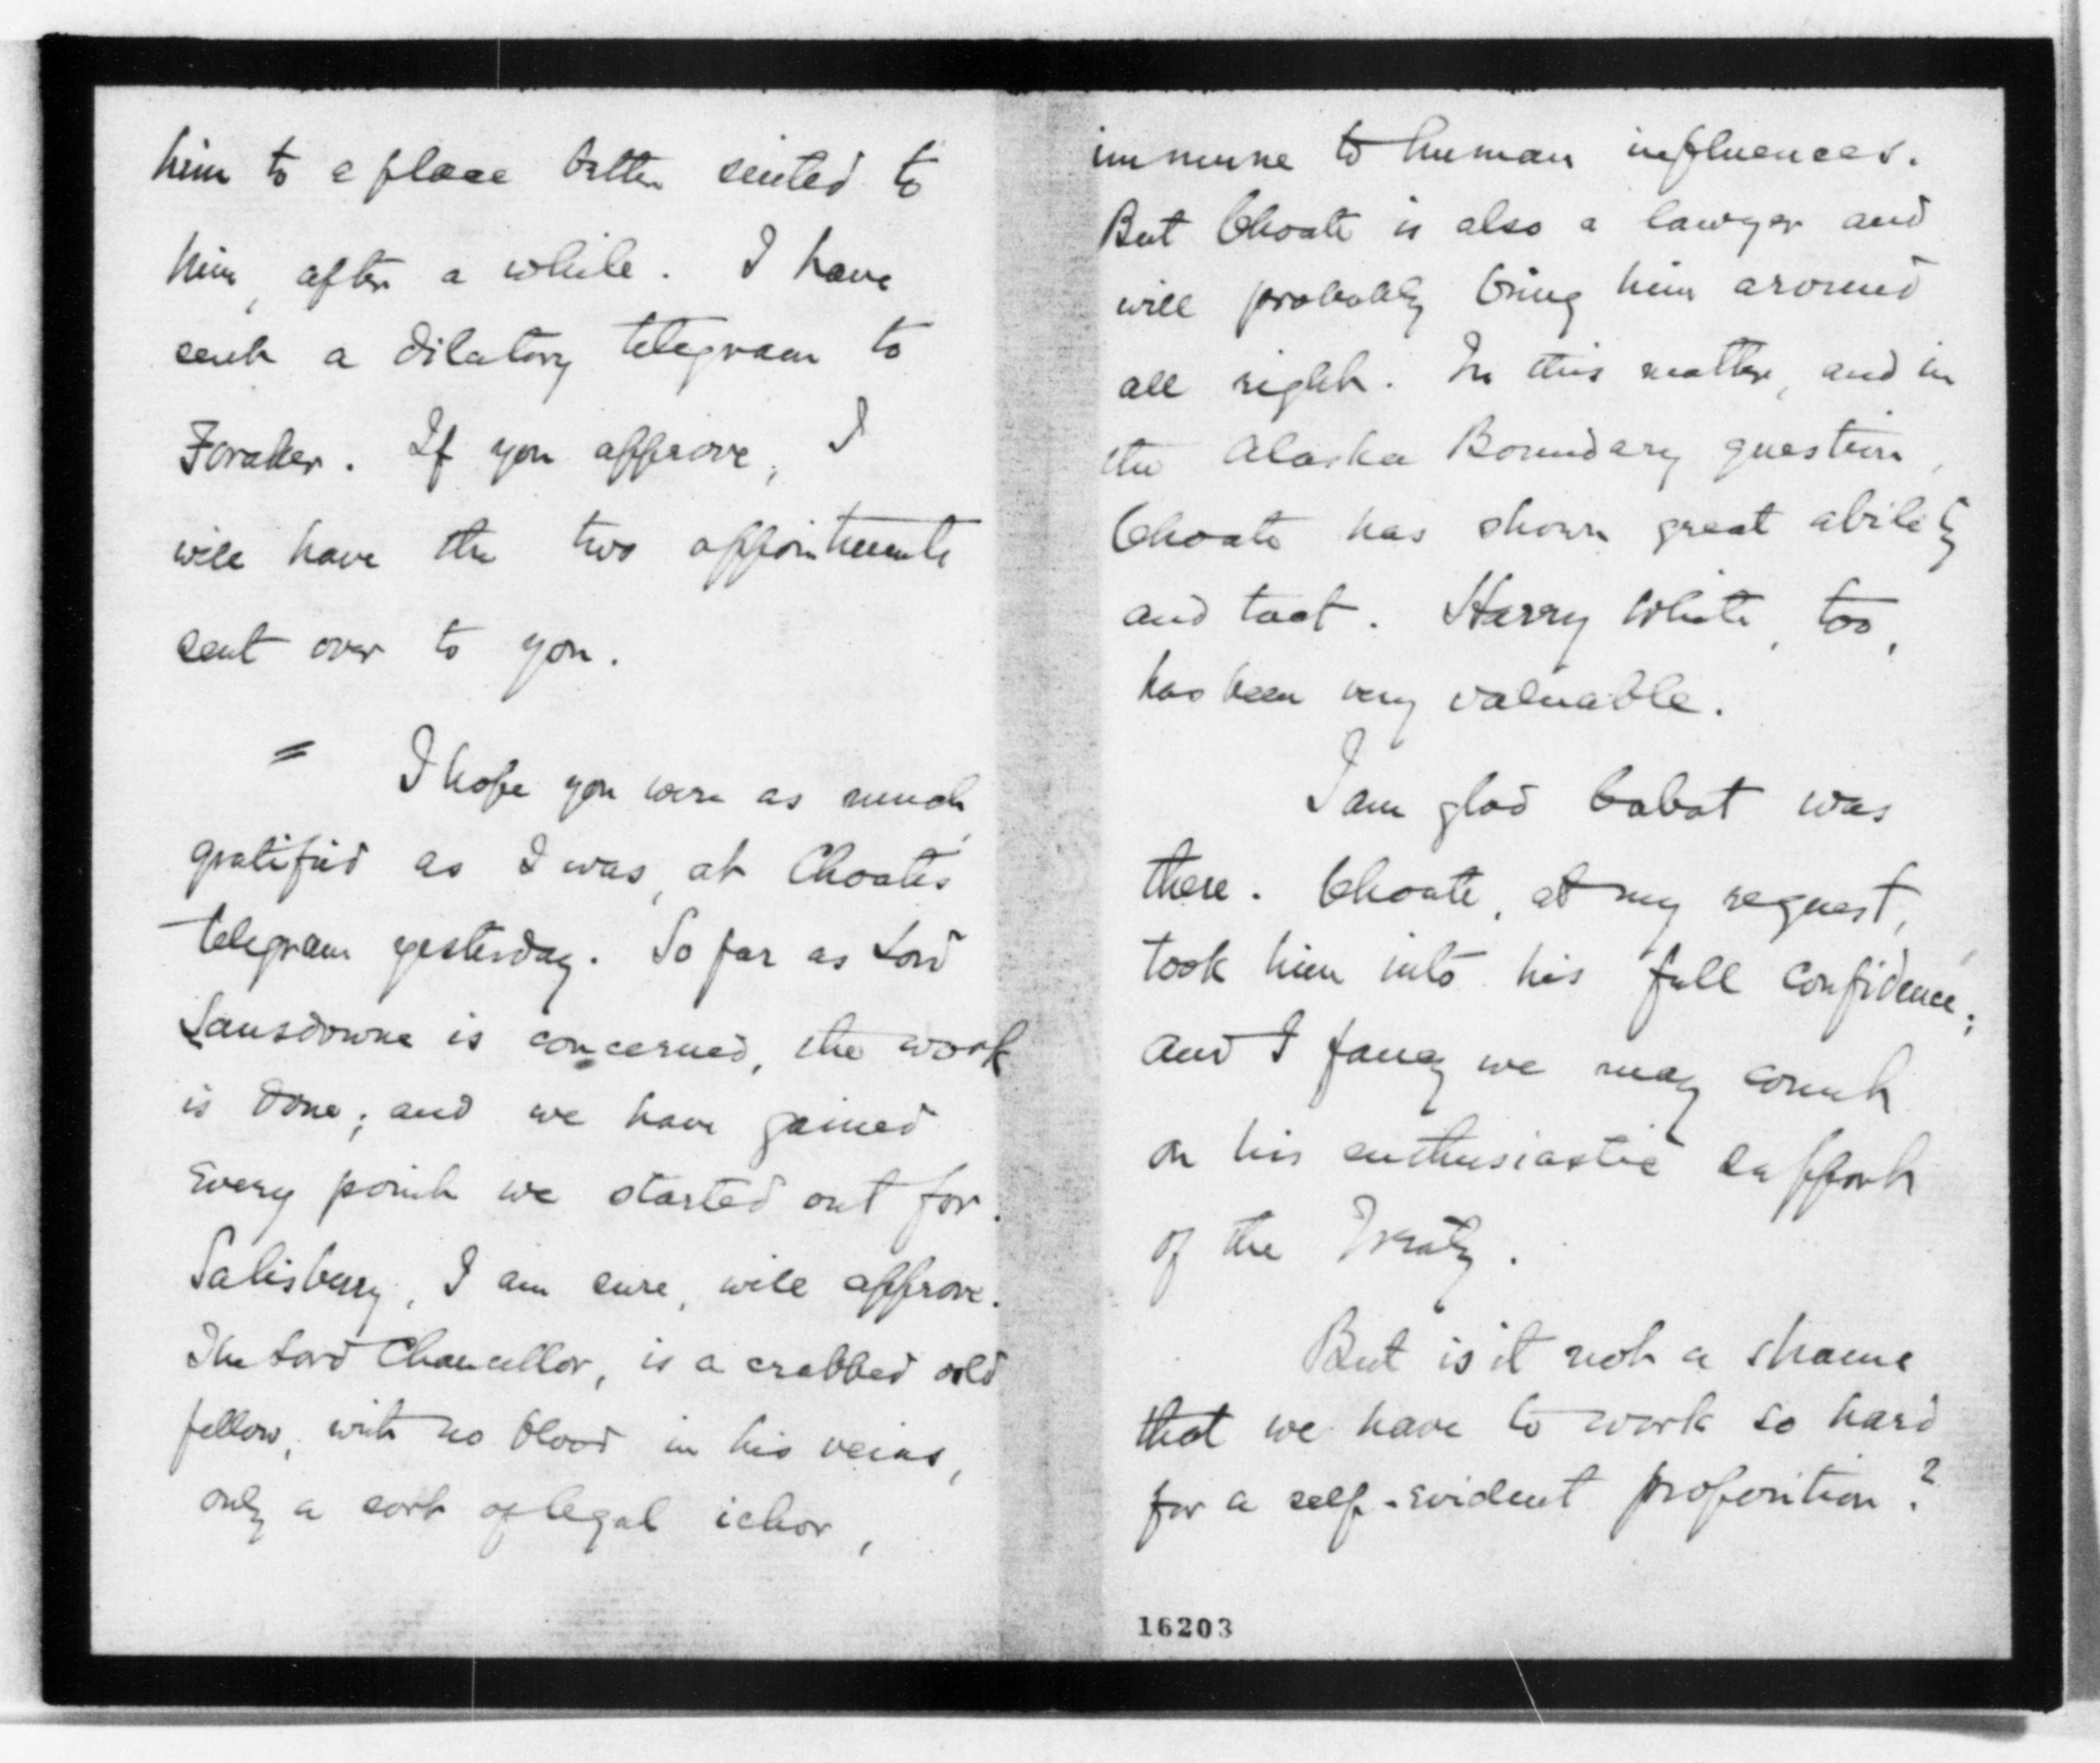 him to a place better suited to
him, after a while. I have
sent a dilatory telegram to
Foraker. If you approve, I
will have the two appointments
sent over to you.
= I hope you were as much
gratified as I was, at Choate's
telegram yesterday. So far as Lord
Lansdowne is concerned, the work
is done; and we have gained
every point we started out for.
Salisbury, I am sure, will approve.
The Lord Chancellor, is a crabbed old
fellow, with no blood in his veins,
only a sort of legal ichor,
immune to human influences.
But Choate is also a lawyer and
will probably bring him around
all right. In this matter, and in
the Alaska Boundary question,
Choate has shown great ability
and tact. Harry White, too,
has been very valuable.
I am glad Cabot was
there. Choate, at my request,
took him into his full confidence;
and I fancy we may count
on his enthusiastic support
of the Treaty.
But is it not a shame
that we have to work so hard
for a self-evident proposition?
16203